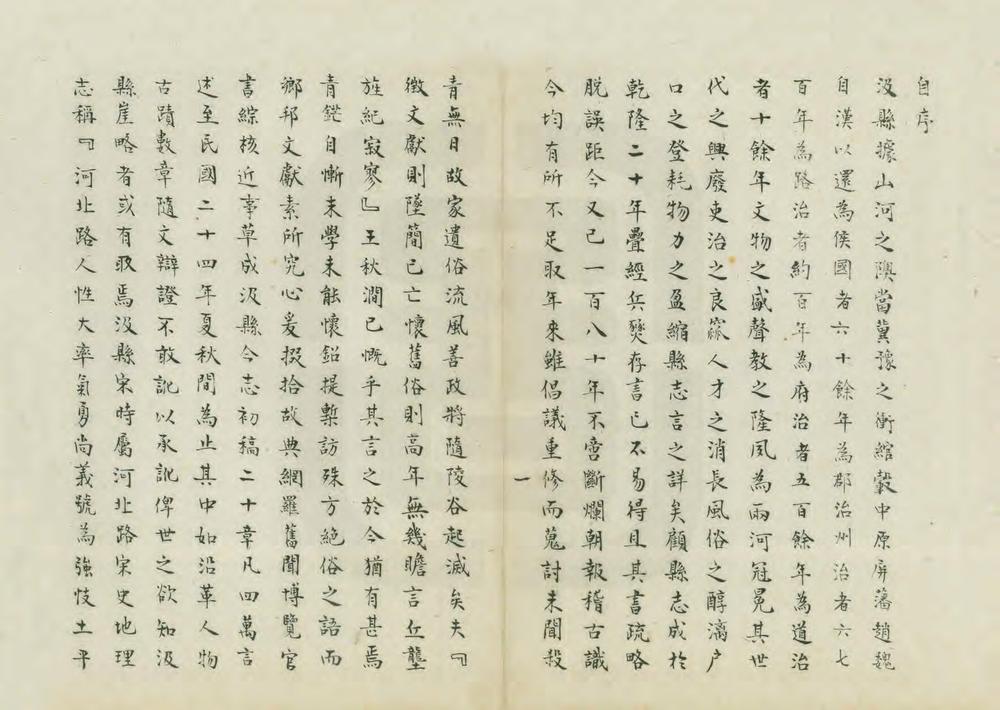 自序
汲縣據山河之隩當冀豫之衝綰轂中原屏藩趙魏
自漢以還為侯國者六十餘年為郡治州治者六七
百年為路治者約百年為府治者五百餘年為道治
者十餘年文物之盛聲教之隆夙為兩河冠冕其世
代之興廢吏治之良窳人才之消長風俗之醇漓户
口之登耗物力之盈縮縣志言之詳矣顧縣志成於
乾隆二十年疊經兵燹存書已不易得且其書疏略
脱誤距今又已一百八十年不啻斷爛朝報稽古識
今均有所不足取年來雖倡議重修而蒐討未聞殺
一
青無日故家遺俗流風善政將隨陵谷起滅矣夫『
徵文獻則墜簡已亡懷舊俗則高年無幾瞻言丘壟
旌紀寂寥』王秋澗已慨乎其言之於今猶有甚焉
青鋩自慚末學未能懷鉛提槧訪殊方絕俗之語而
鄉邦文獻素所究心爰掇拾故典網羅舊聞博覽官
書綜核近事草成汲縣今志初稿二十章凡四萬言
述至民國二十四年夏秋間為止其中如沿革人物
古蹟數章隨文辯證不敢訛以承訛俾世之欲知汲
縣崖略者或有取焉汲縣宋時屬河北路宋史地理
志稱『河北路人性大率氣勇尚義號為強忮土平